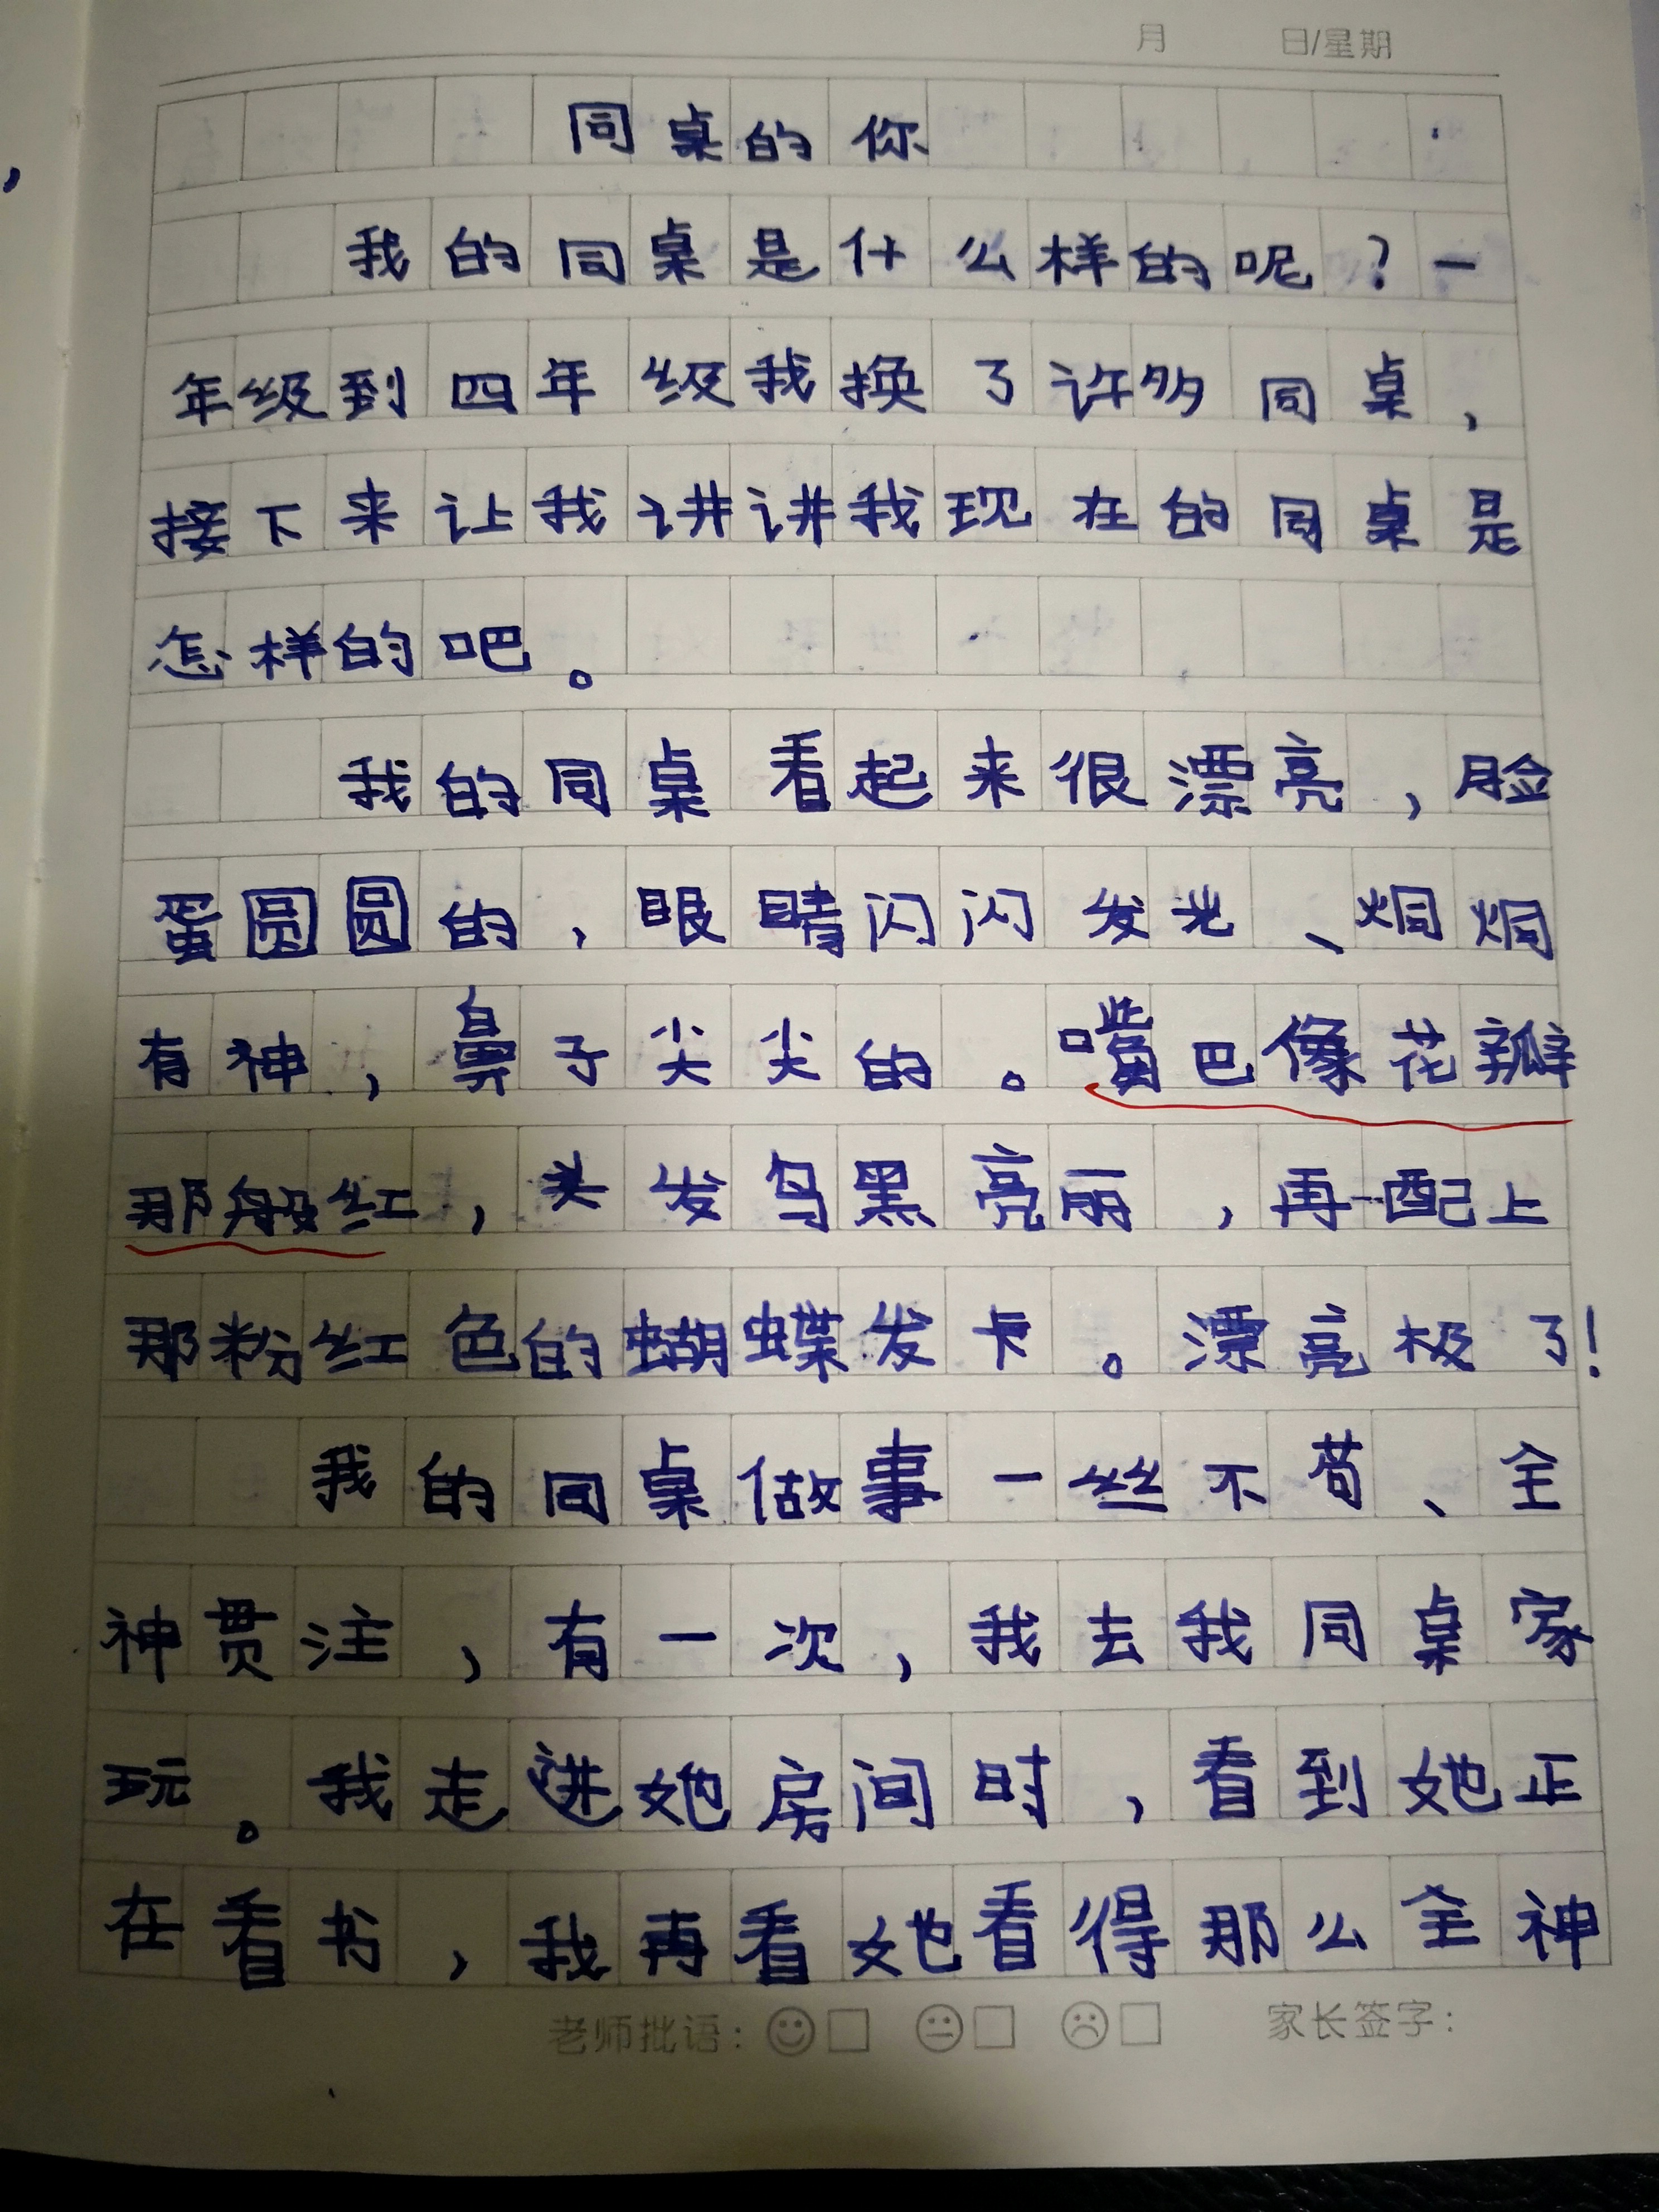 月 日/星期
同桌的你
我的同桌是什么样的呢？一
年级到四年级我换了许多同桌，
接下来让我讲讲我现在的同桌是
怎样的吧。
我的同桌看起来很漂亮，脸
蛋圆圆的，眼睛闪闪发光、炯炯
有神，鼻子尖尖的。嘴巴像花瓣
那般红，头发乌黑亮丽，再配上
那粉红色的蝴蝶发卡。漂亮极了！
我的同桌做事一丝不苟、全
神贯注，有一次，我去我同桌家
玩。我走进她房间时，看到她正
在看书，我再看她看得那么全神
老师批语： 家长签字：